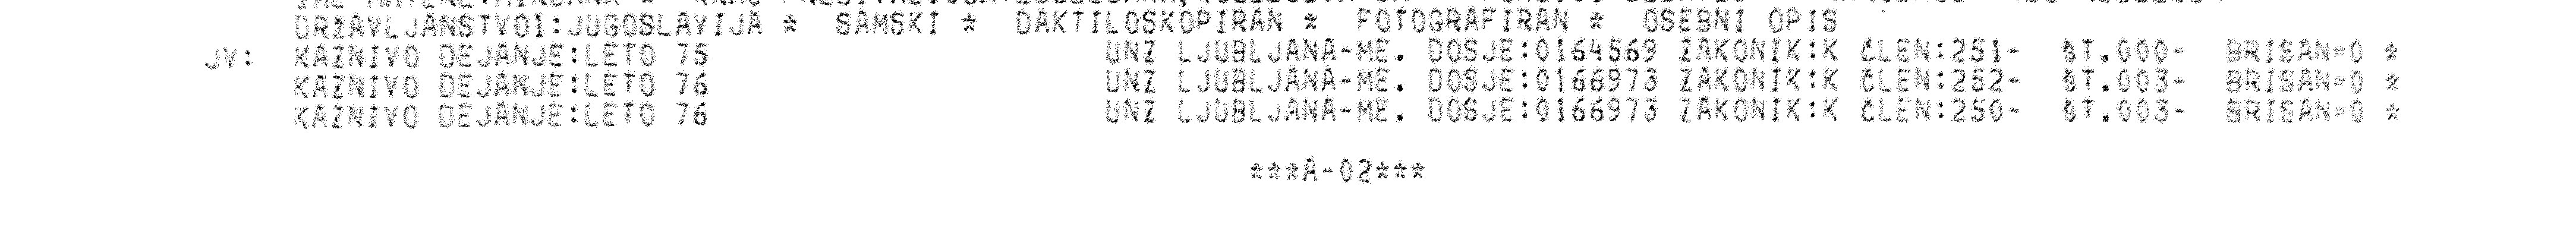 DRZAVLJANSTVO1:JUGOSLAVIJA * SAMSKI * DAKTILOSKOPIRAN * FOTOGRAFIRAN * OSEBNI OPIS
JV: KAZNIVO DEJANJE:LETO 75 UNZ LJUBLJANA-ME. DOSJE:0164569 ZAKONIK:K ČLEN:251- ŠT.000- BRISAN=0 *
KAZNIVO DEJANJE:LETO 76 UNZ LJUBLJANA-ME. DOSJE:0166973 ZAKONIK:K ČLEN:252- ŠT.003- BRISAN=0 *
KAZNIVO DEJANJE:LETO 76 UNZ LJUBLJANA-ME. DOSJE:0166973 ZAKONIK:K ČLEN:250- ŠT.003- BRISAN=0 *
***A-02***